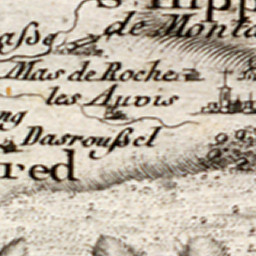 S. Hipp
de Monta
asde
Mas de Roche
les Auvis
ng
Dasroussel
red